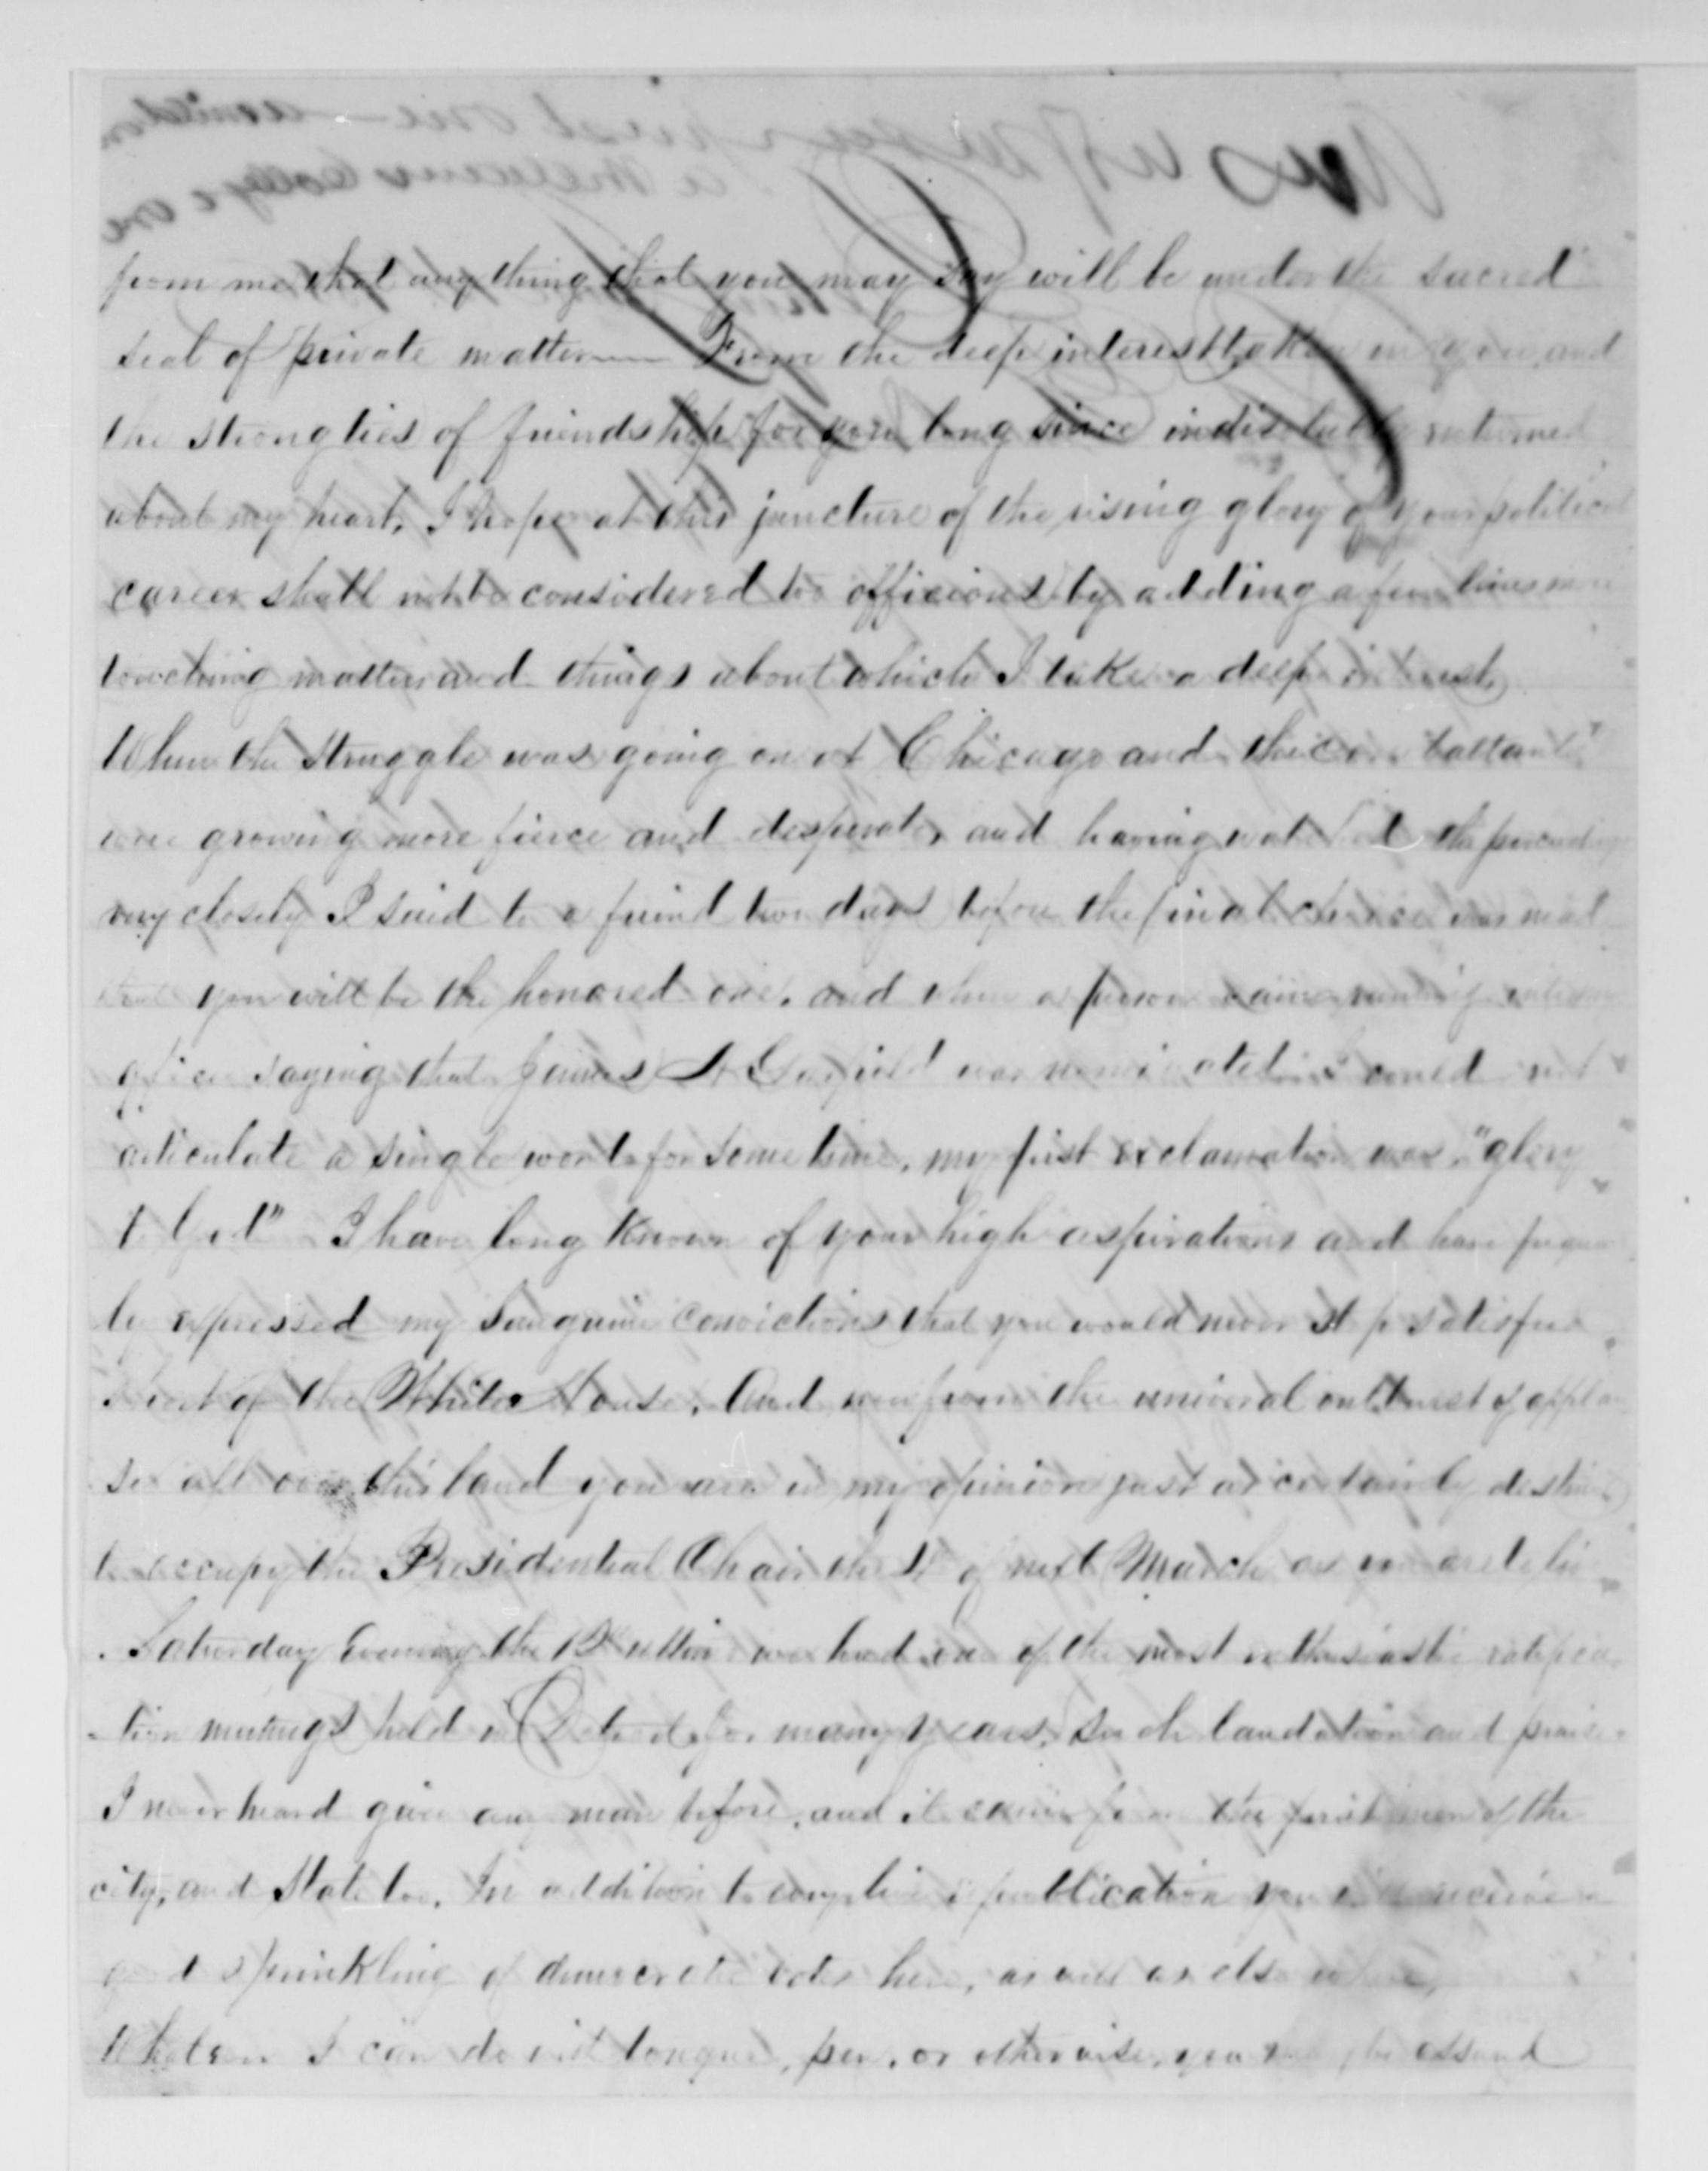 from me that any thing that you may say will be under the sacred
seal of private matter — From the deep interest taken in you, and
the strong ties of friendship for you long since indissolubly entwined
about my heart, I hope at this juncture of the rising glory of your political
career shall not be considered too officious by adding a few lines more
touching matters and things about which I take a deep interest,
When the struggle was going on at Chicago and the combattants
were growing more fierce and desperate, and having watched the proceedings
very closely I said to a friend two days before the final choice was made
that you will be the honored one. and when a person came running into my
office saying that James A Garfield was nominated I could not
articulate a single word for some time, my first exclamation was, "glory
to God" I have long known of your high aspirations and have frequent
ly expressed my sanguine convictions that you would never stop satisfied
short of the White House. And now from the universal outburst of applau
se all over this land you are in my opinion just as certainly destined
to occupy the Presidential Chair the 4th of next March as
Saturday Evening the 12th we had one of the most enthusiastic ratifica
-tion meetings held in Detroit for many years. Such laudation and praise
I never heard given any man before, and it came from the first men of the
city, and State too. In addition to you will receive a
good sprinkling of democratic votes here, as well as elsewhere,
Whatever I can do with tongue, pen, or otherwise, you may be assured